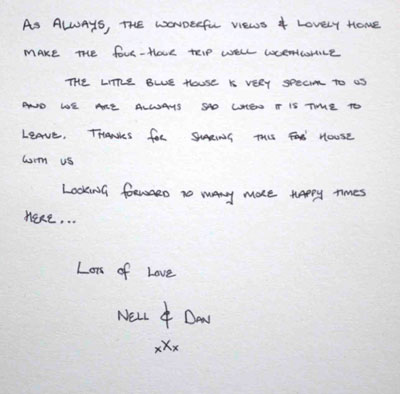 As Always, the wonderful views & lovely home
make the four-hour trip well worthwhile
The little blue house is very special to us
and we are always sad when it is time to
leave. Thanks for sharing this fab house
with us
Looking forward to many more happy times
here...
Lots of Love
Nell & Dan
xXx